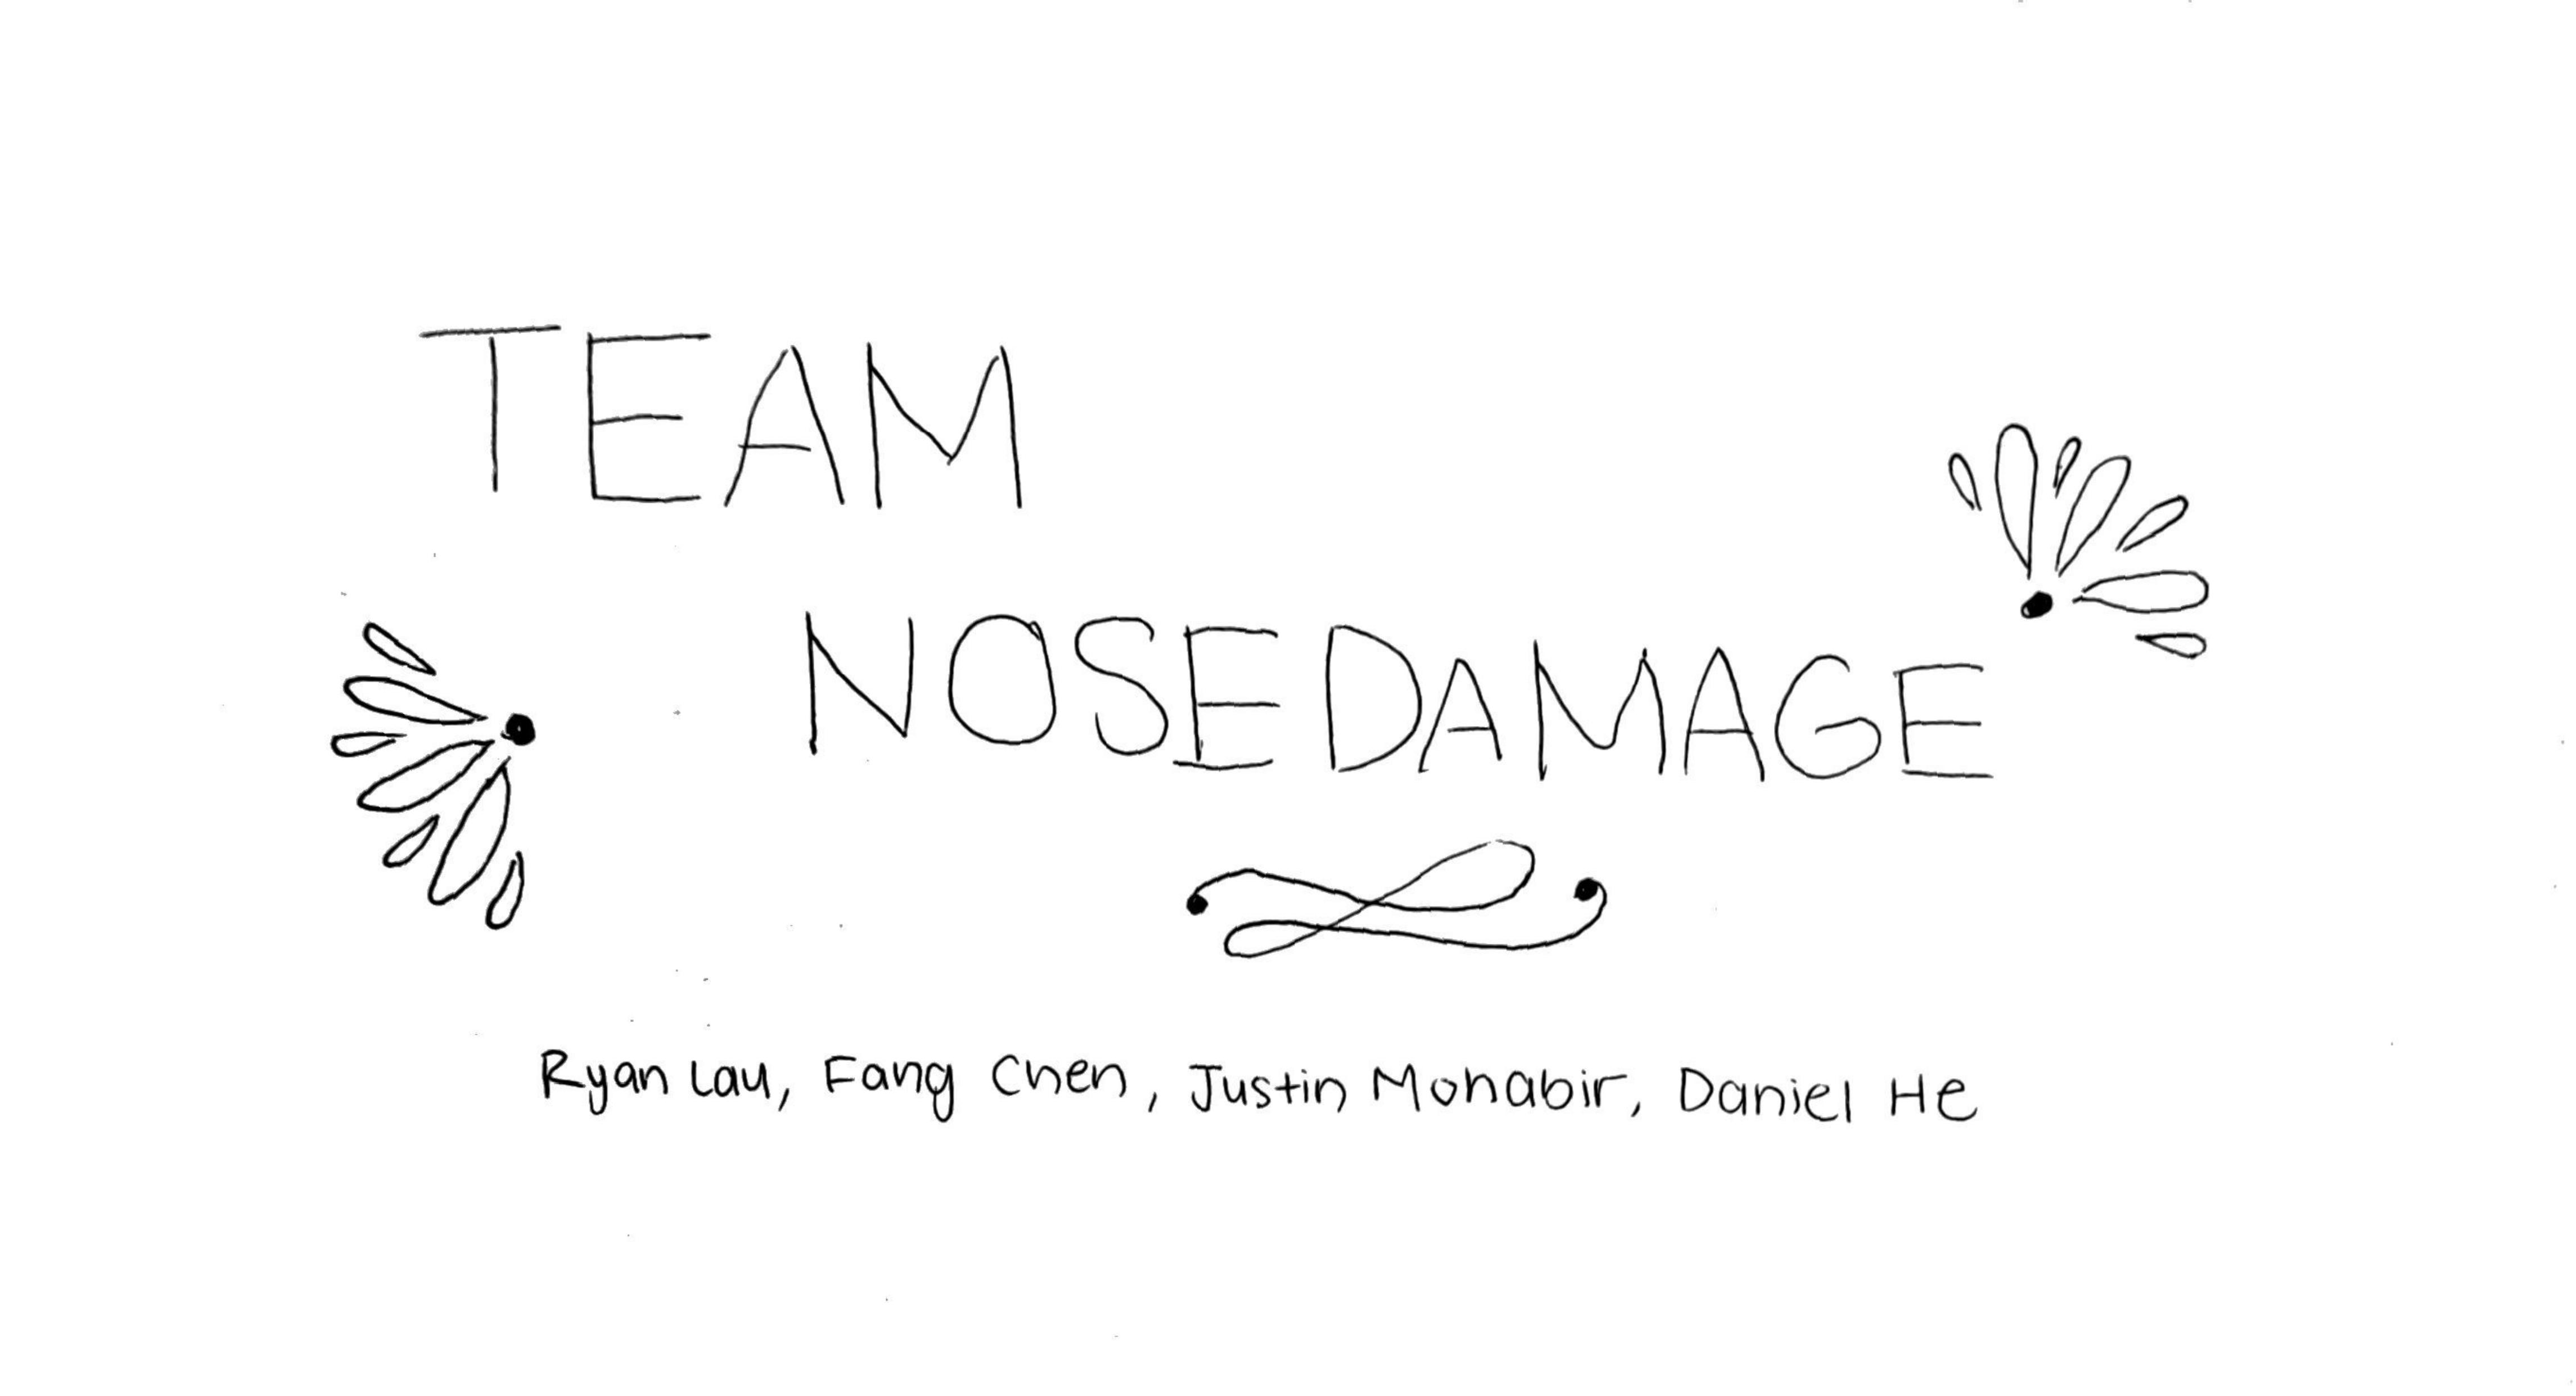 TEAM
NOSEDAMAGE
Ryan Lau, Fang Chen, Justin Mohabir, Daniel He